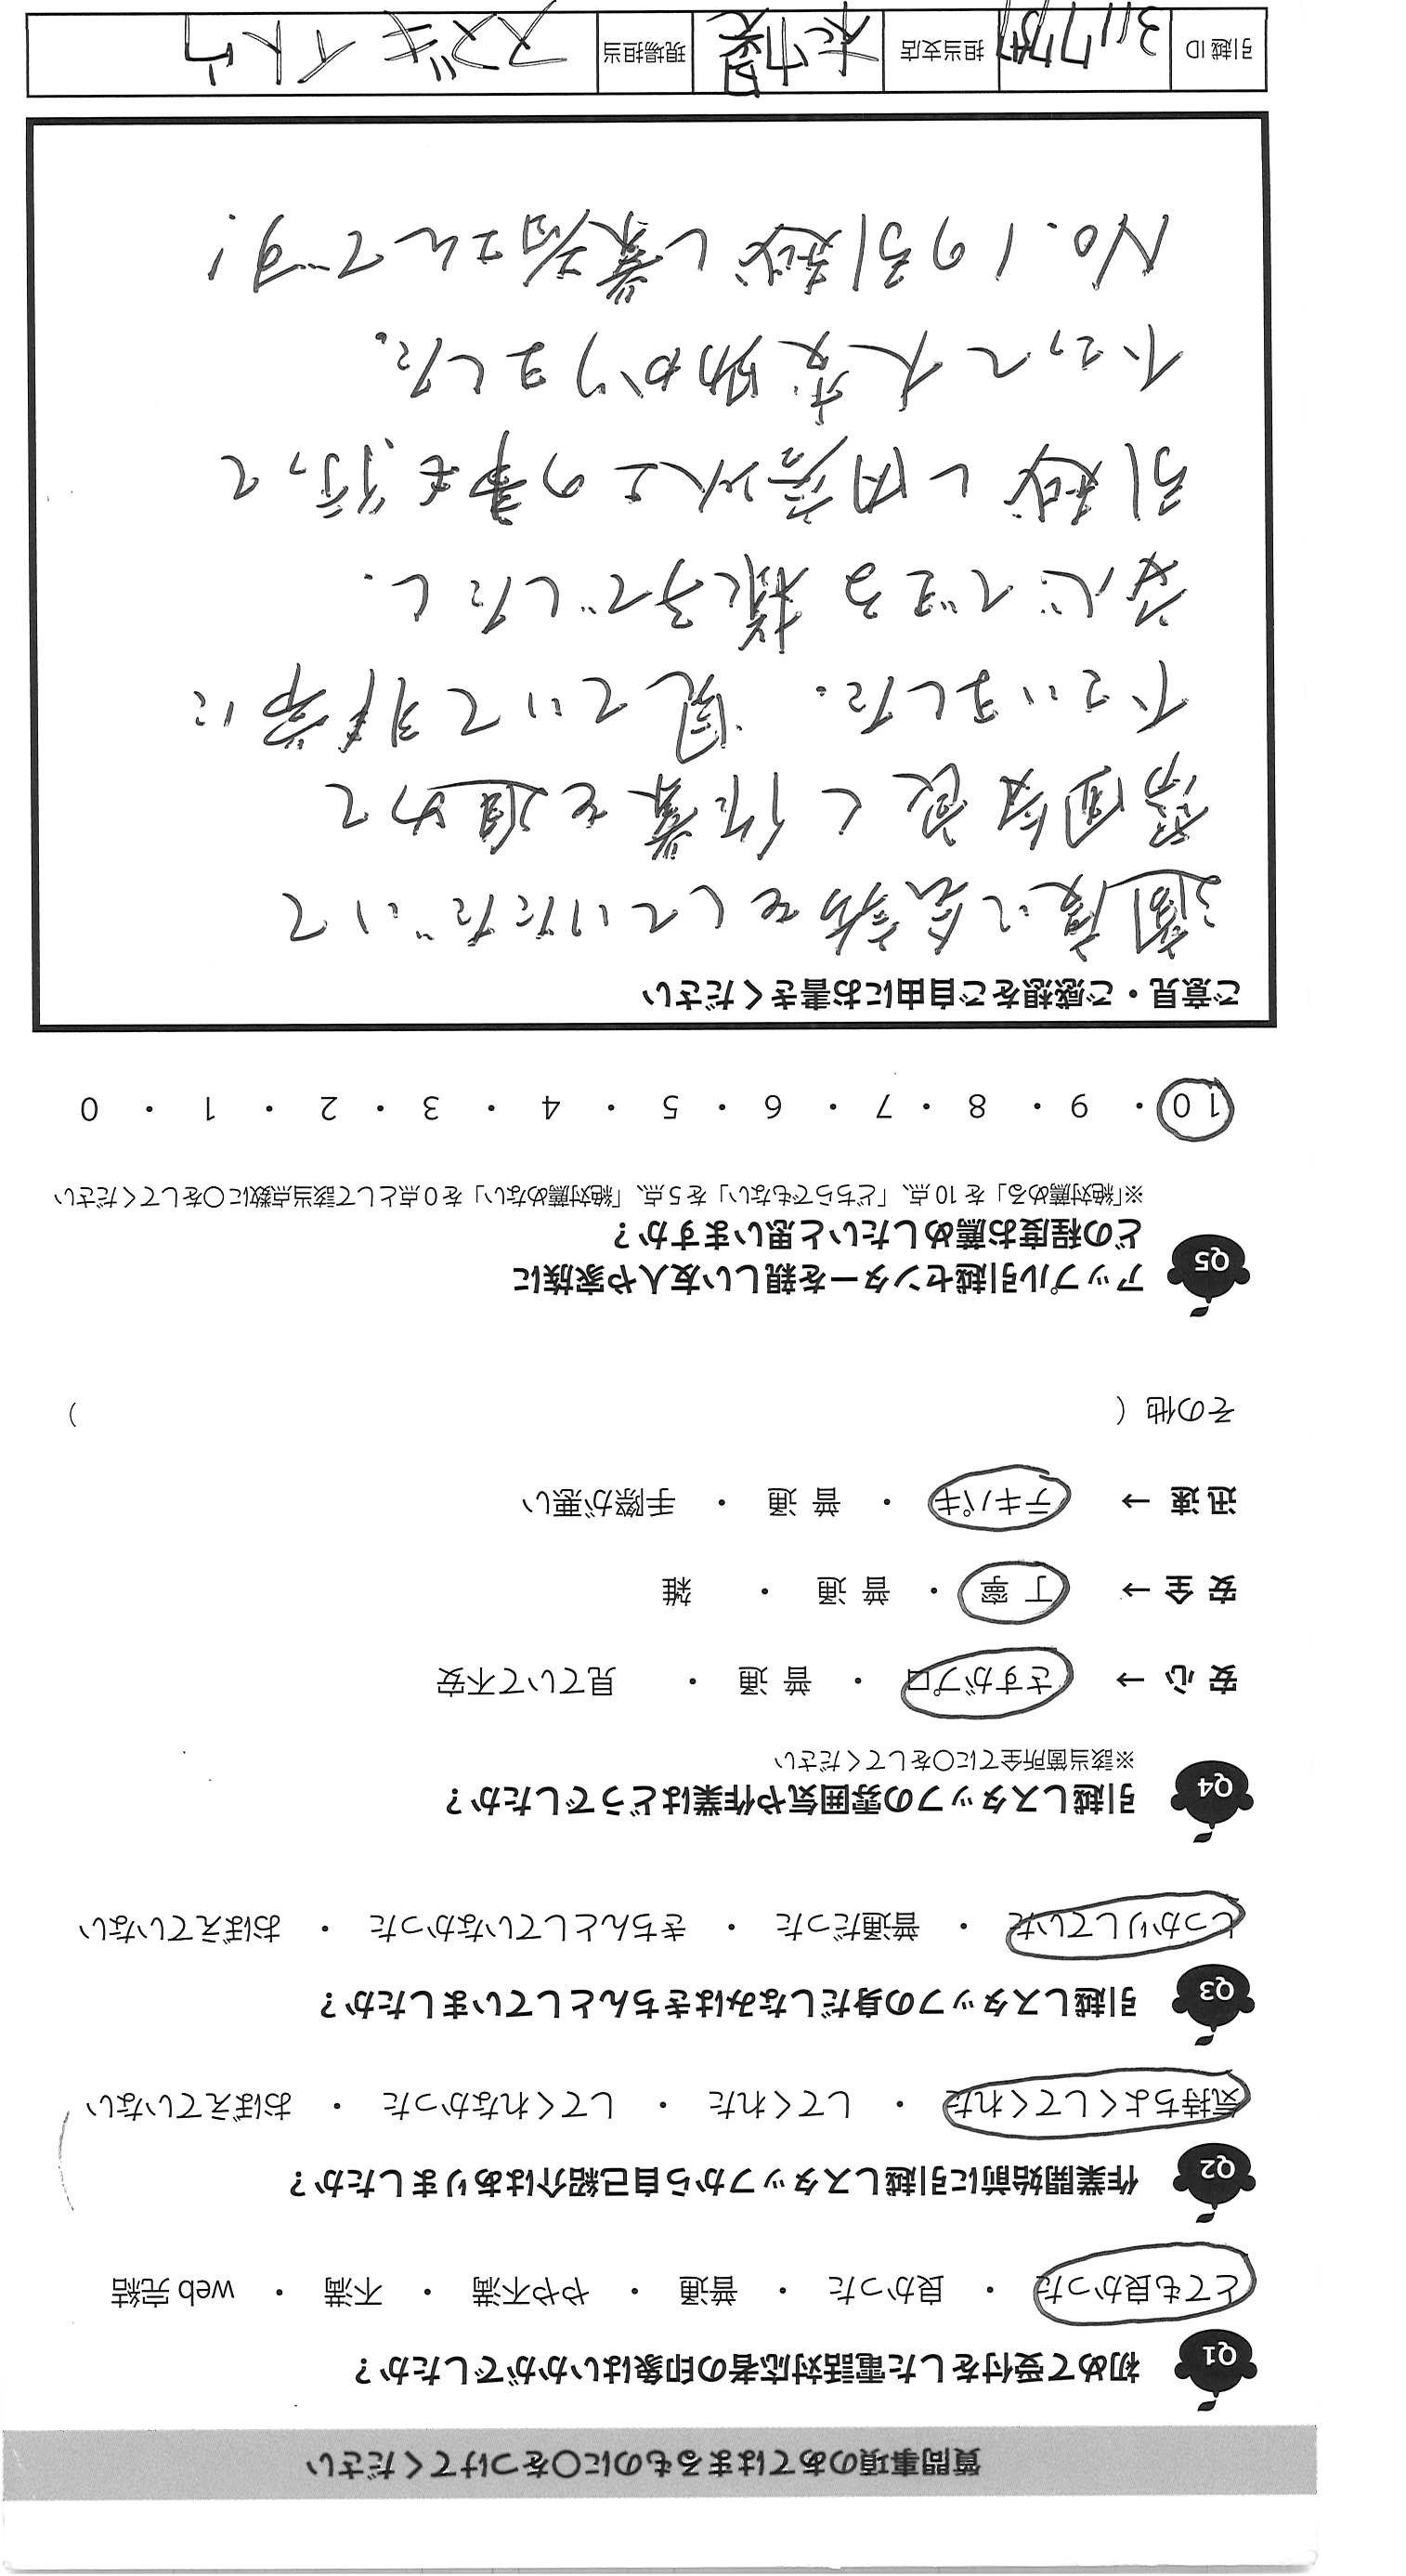 質問事項のあてはまるものに○をつけてください
Q1 初めて受付をした電話対応者の印象はいかがでしたか？
とても良かった ・ 良かった ・ 普通 ・ やや不満 ・ 不満 ・ web 完結
Q2 作業開始前に引越しスタッフから自己紹介はありましたか？
気持ちよくしてくれた ・ してくれた ・ してくれなかった ・ おぼえていない
Q3 引越しスタッフの身だしなみはきちんとしていましたか？
しっかりしていた ・ 普通だった ・ きちんとしていなかった ・ おぼえていない
Q4 引越しスタッフの雰囲気や作業はどうでしたか？
※該当箇所全てに○をしてください
安 心 → さすがプロ ・ 普 通 ・ 見ていて不安
安 全 → 丁 寧 ・ 普 通 ・ 雑
迅 速 → テキパキ ・ 普 通 ・ 手際が悪い
その他 （ ）
Q5 アップル引越センターを親しい友人や家族に
どの程度お薦めしたいと思いますか？
※「絶対薦める」を 10 点、「どちらでもない」を 5 点、「絶対薦めない」を 0 点として該当点数に○をしてください
10 ・ 9 ・ 8 ・ 7 ・ 6 ・ 5 ・ 4 ・ 3 ・ 2 ・ 1 ・ 0
ご意見・ご感想をご自由にお書きください
適度に会話をしていただいて
雰囲気良く作業を進めて
下さいました。見ていて非常に
安心できる様子でしたし、
引越し内容以上の事も行って
下さって大変助かりました。
No.1の引越し業者さんです！
引越 ID 担当支店 現場担当 スズキ イトウ